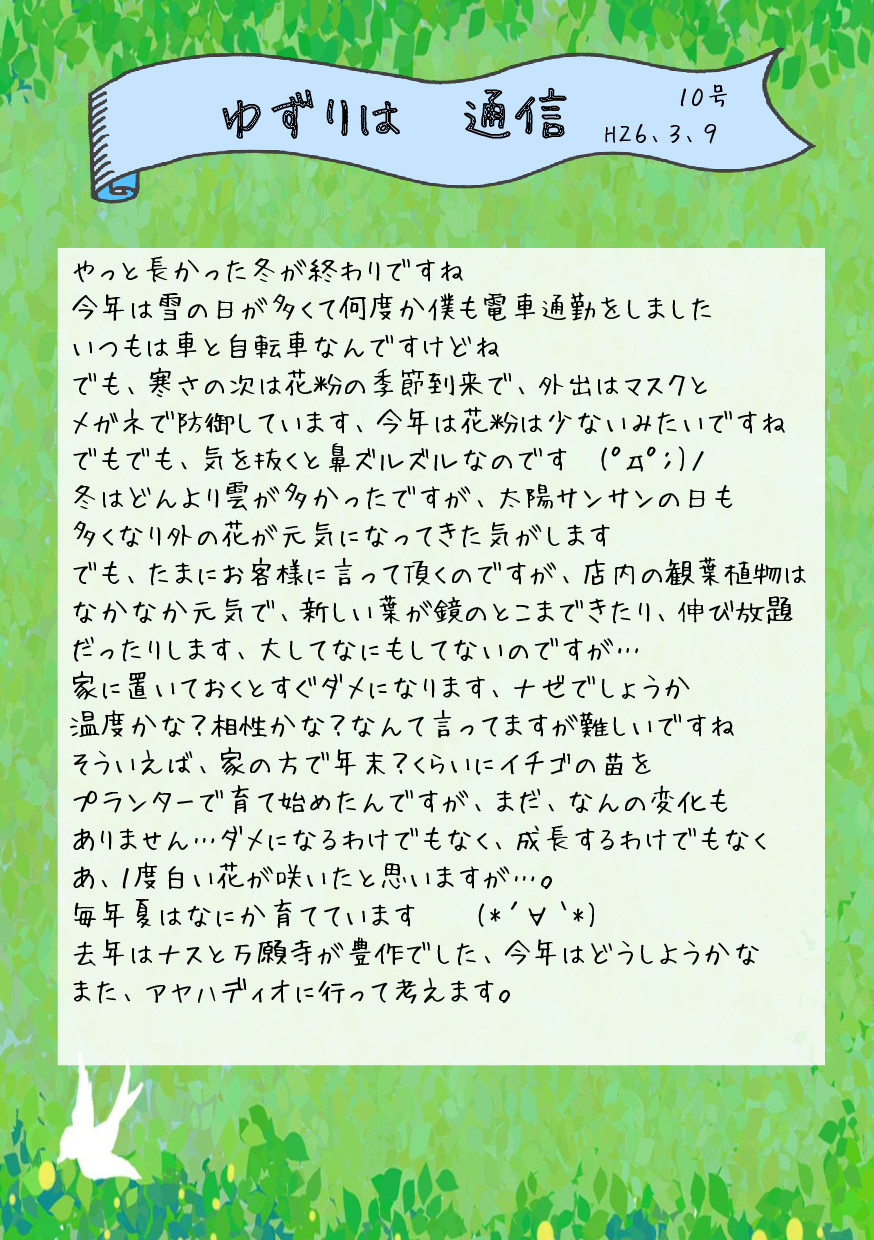 ゆずりは 通信
10号
H26、3、9
やっと長かった冬が終わりですね
今年は雪の日が多くて何度か僕も電車通勤をしました
いつもは車と自転車なんですけどね
でも、寒さの次は花粉の季節到来で、外出はマスクと
メガネで防御しています、今年は花粉は少ないみたいですね
でもでも、気を抜くと鼻ズルズルなのです (ﾟДﾟ;)/
冬はどんより雲が多かったですが、太陽サンサンの日も
多くなり外の花が元気になってきた気がします
でも、たまにお客様に言って頂くのですが、店内の観葉植物は
なかなか元気で、新しい葉が鏡のとこまできたり、伸び放題
だったりします、大してなにもしてないのですが…
家に置いておくとすぐダメになります、ナゼでしょうか
温度かな？相性かな？なんて言ってますが難しいですね
そういえば、家の方で年末？くらいにイチゴの苗を
プランターで育て始めたんですが、まだ、なんの変化も
ありません…ダメになるわけでもなく、成長するわけでもなく
あ、1度白い花が咲いたと思いますが…。
毎年夏はなにか育てています (*´∀`*)
去年はナスと万願寺が豊作でした、今年はどうしようかな
また、アヤハディオに行って考えます。